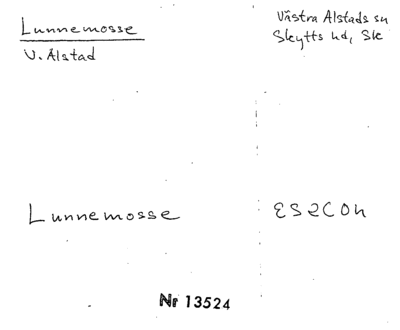 Lunnemosse
V. Alstad
Västra Alstads sn
Skytts hd, Sk
Lunnemosse
ES2C0h
Nr 13524